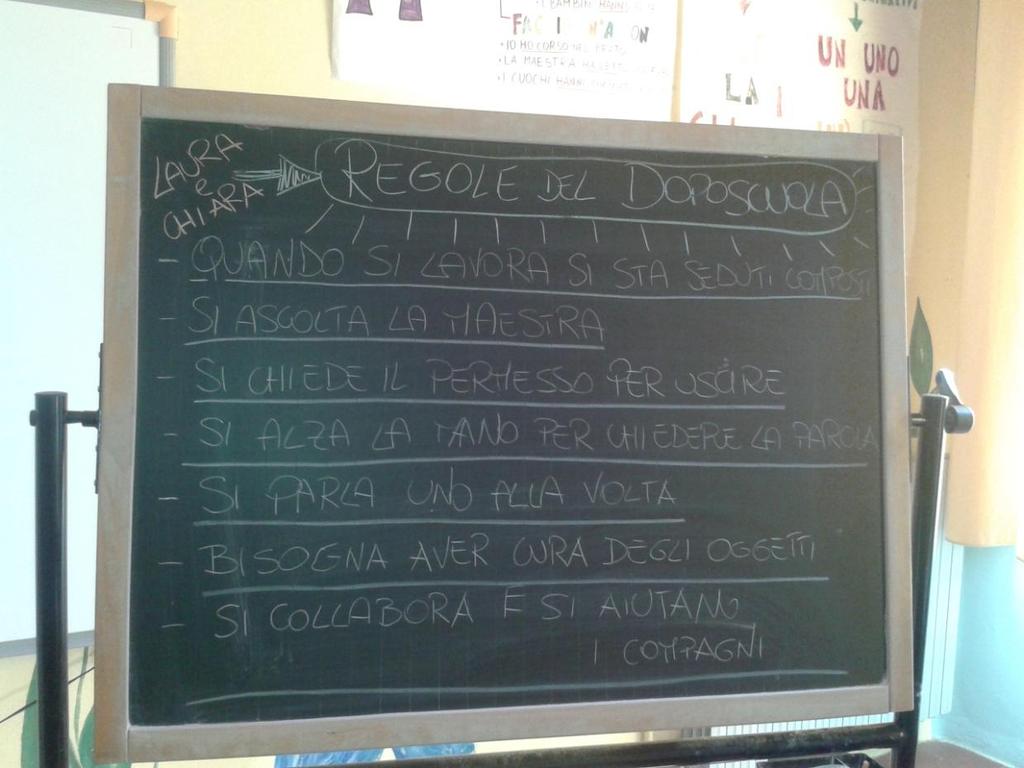 I BAMBINI HANNO
•IO HO CORSO NEL PRATO
•LA MAESTRA HA LETTO
•I CUOCHI HANNO
UN UNO
UNA
LA
LAURA
e
CHIARA
REGOLE DEL DOPOSCUOLA
- QUANDO SI LAVORA SI STA SEDUTI COMPOSTI
- SI ASCOLTA LA MAESTRA
- SI CHIEDE IL PERMESSO PER USCIRE
- SI ALZA LA MANO PER CHIEDERE LA PAROLA
- SI PARLA UNO ALLA VOLTA
- BISOGNA AVER CURA DEGLI OGGETTI
- SI COLLABORA E SI AIUTANO
I COMPAGNI